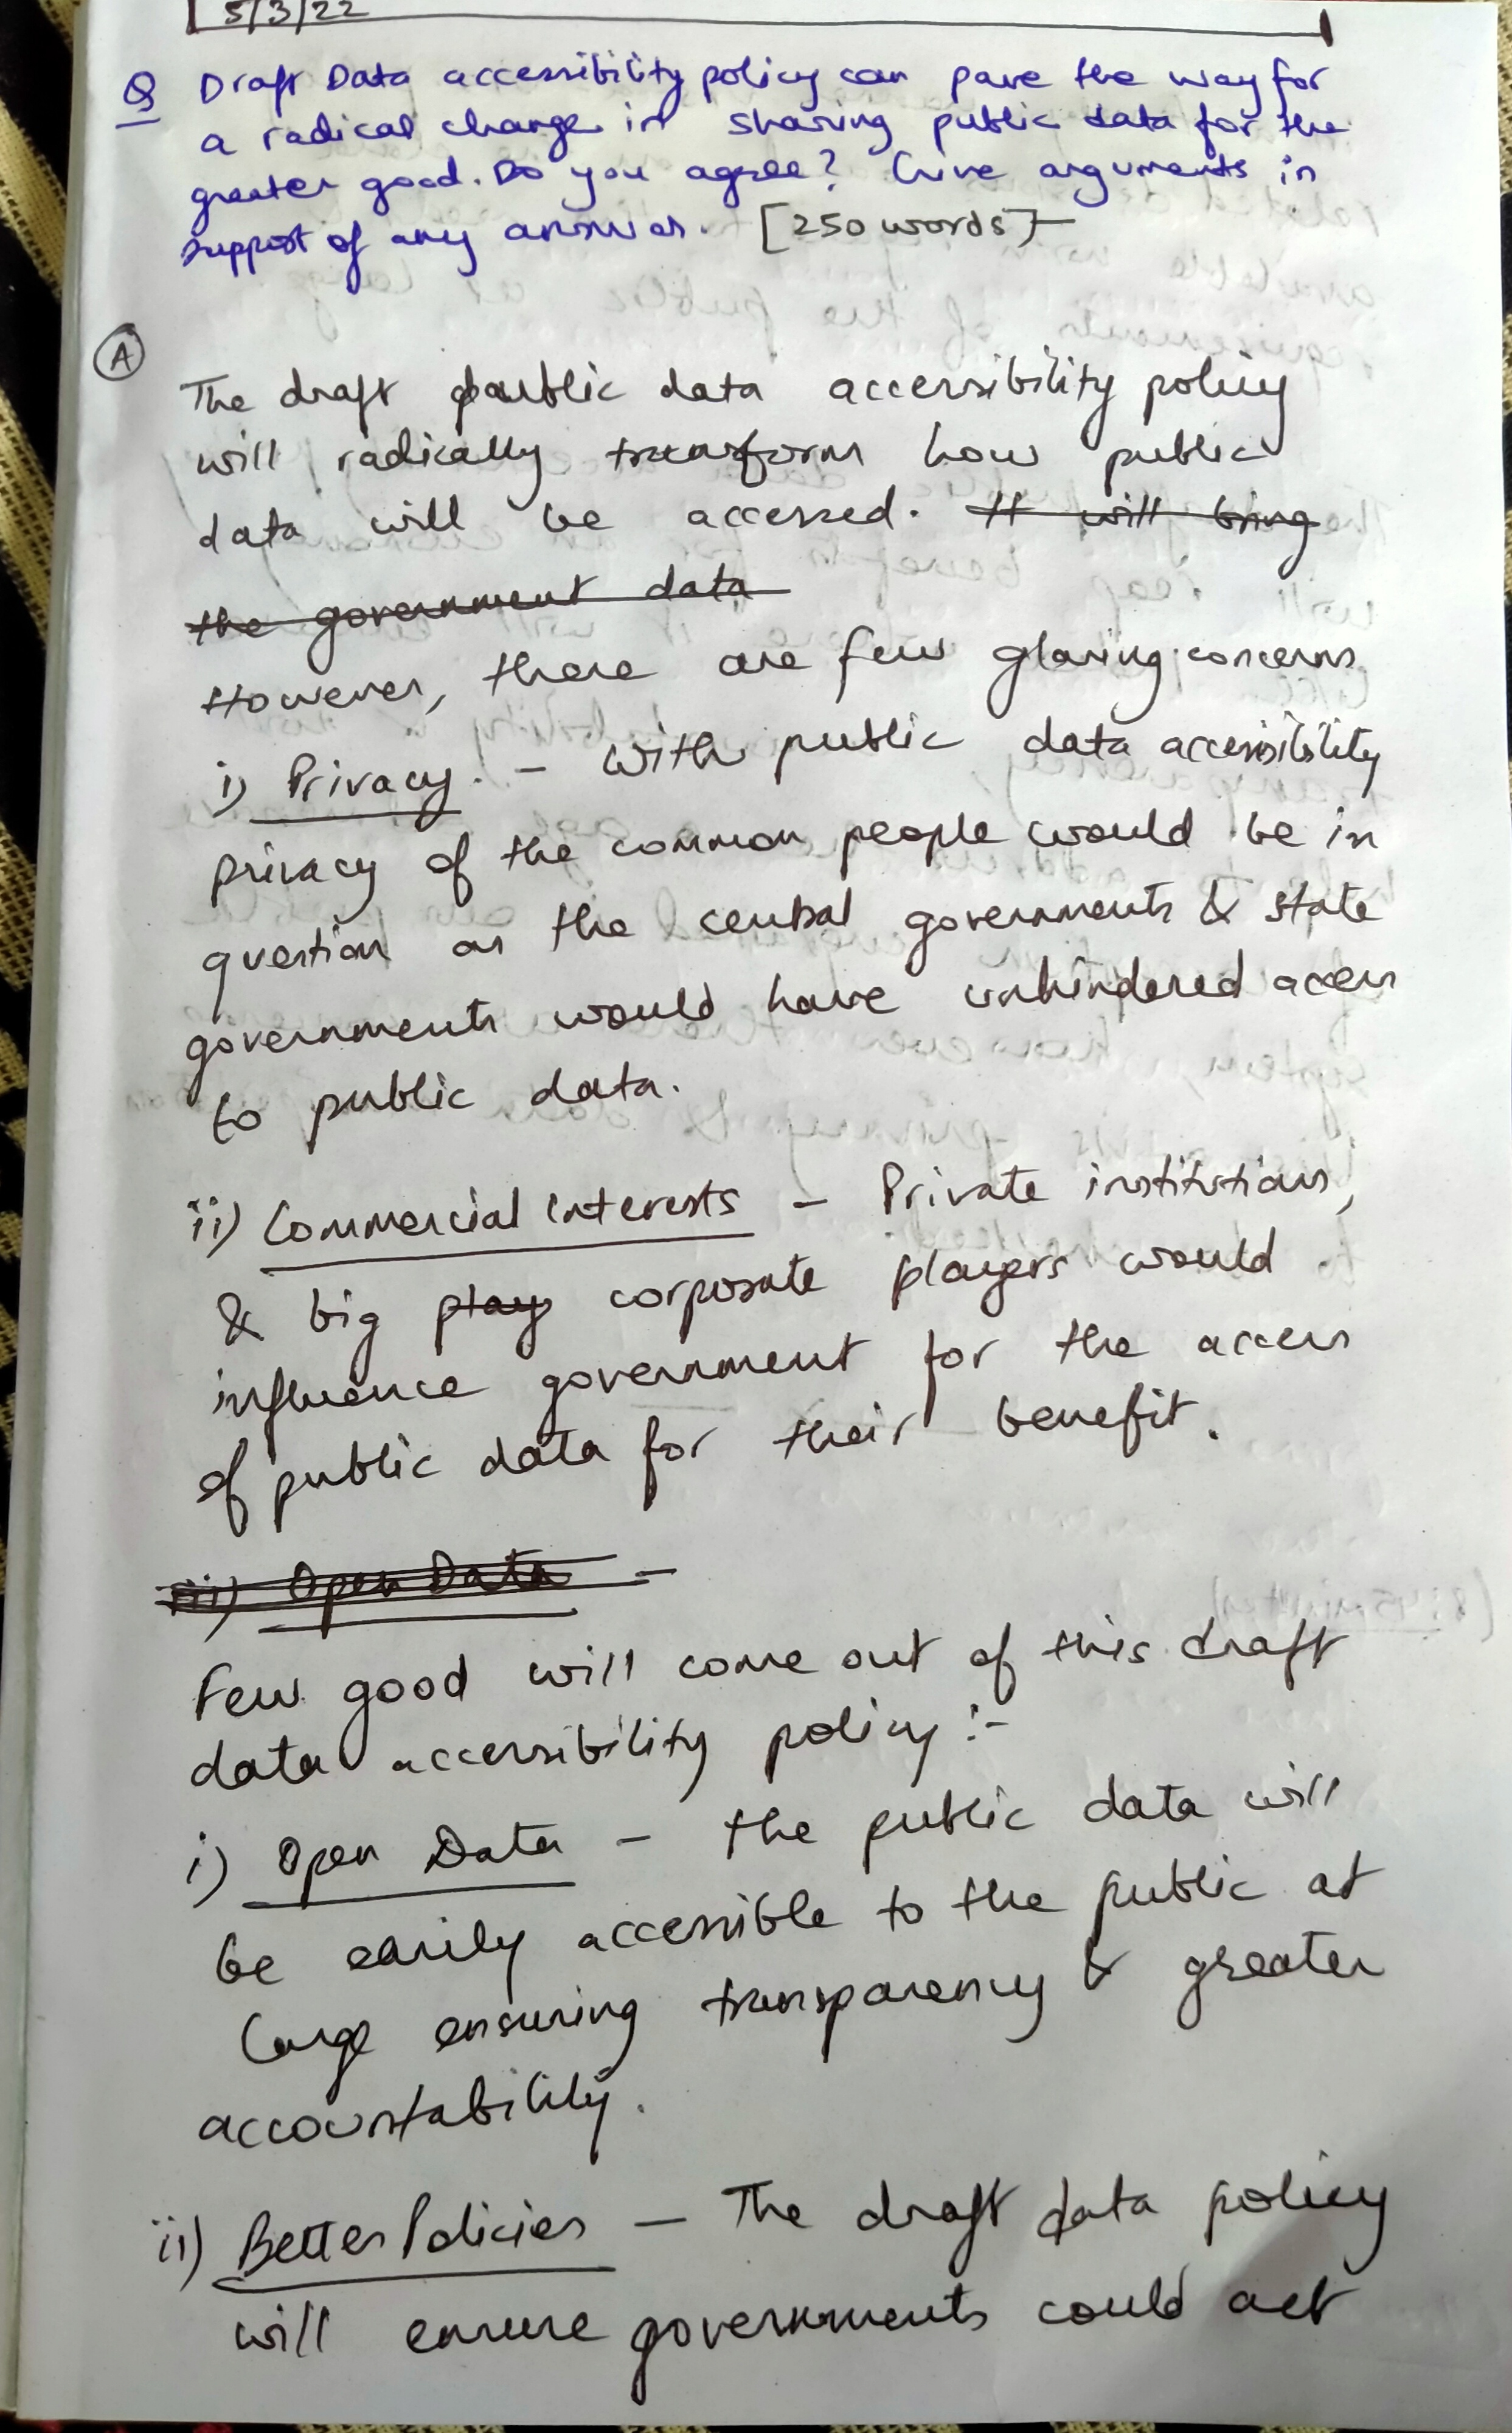 5/3/22
Q Draft Data accessibility policy can pave the way for
a radical change in sharing public data for the
greater good. Do you agree? Give arguments in
support of any answer. [250 words]
A
The draft public data accessibility policy
will radically transform how public
data will be accessed. It will bring
the government data
However, there are few glaring concerns
i) Privacy. - With public data accessibility
privacy of the common people would be in
question as the central governments & state
governments would have unhindered access
to public data.
ii) Commercial interests - Private institutions,
& big play corporate players would
influence government for the access
of public data for their benefit.
iii) Open Data -
Few good will come out of this draft
data accessibility policy :-
i) Open Data - the public data will
be easily accessible to the public at
large ensuring transparency & greater
accountability.
ii) Better Policies - The draft data policy
will ensure governments could act